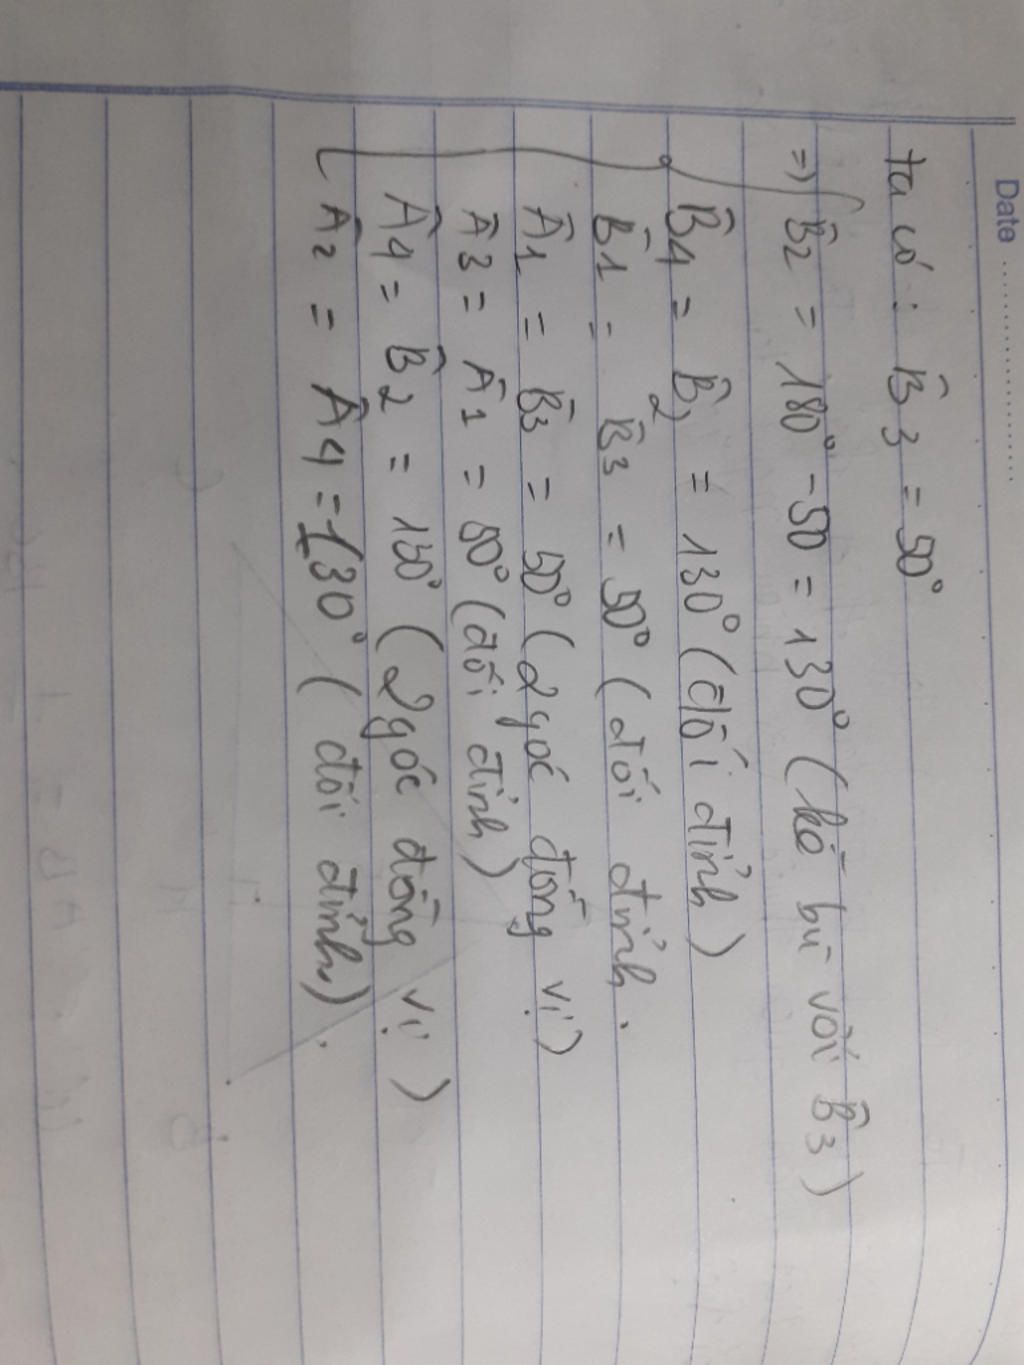 Date ....................
ta có : B̂3 = 50°
=> B̂2 = 180° - 50 = 130° (kề bù với B̂3)
B̂4 = B̂2 = 130° (đối đỉnh)
B̂1 = B̂3 = 50° (đối đỉnh.
Â1 = B̂3 = 50° (2 góc đồng vị)
Â3 = Â1 = 50° (đối đỉnh)
Â4 = B̂2 = 130° (2 góc đồng vị)
Â2 = Â4 = 130° (đối đỉnh).